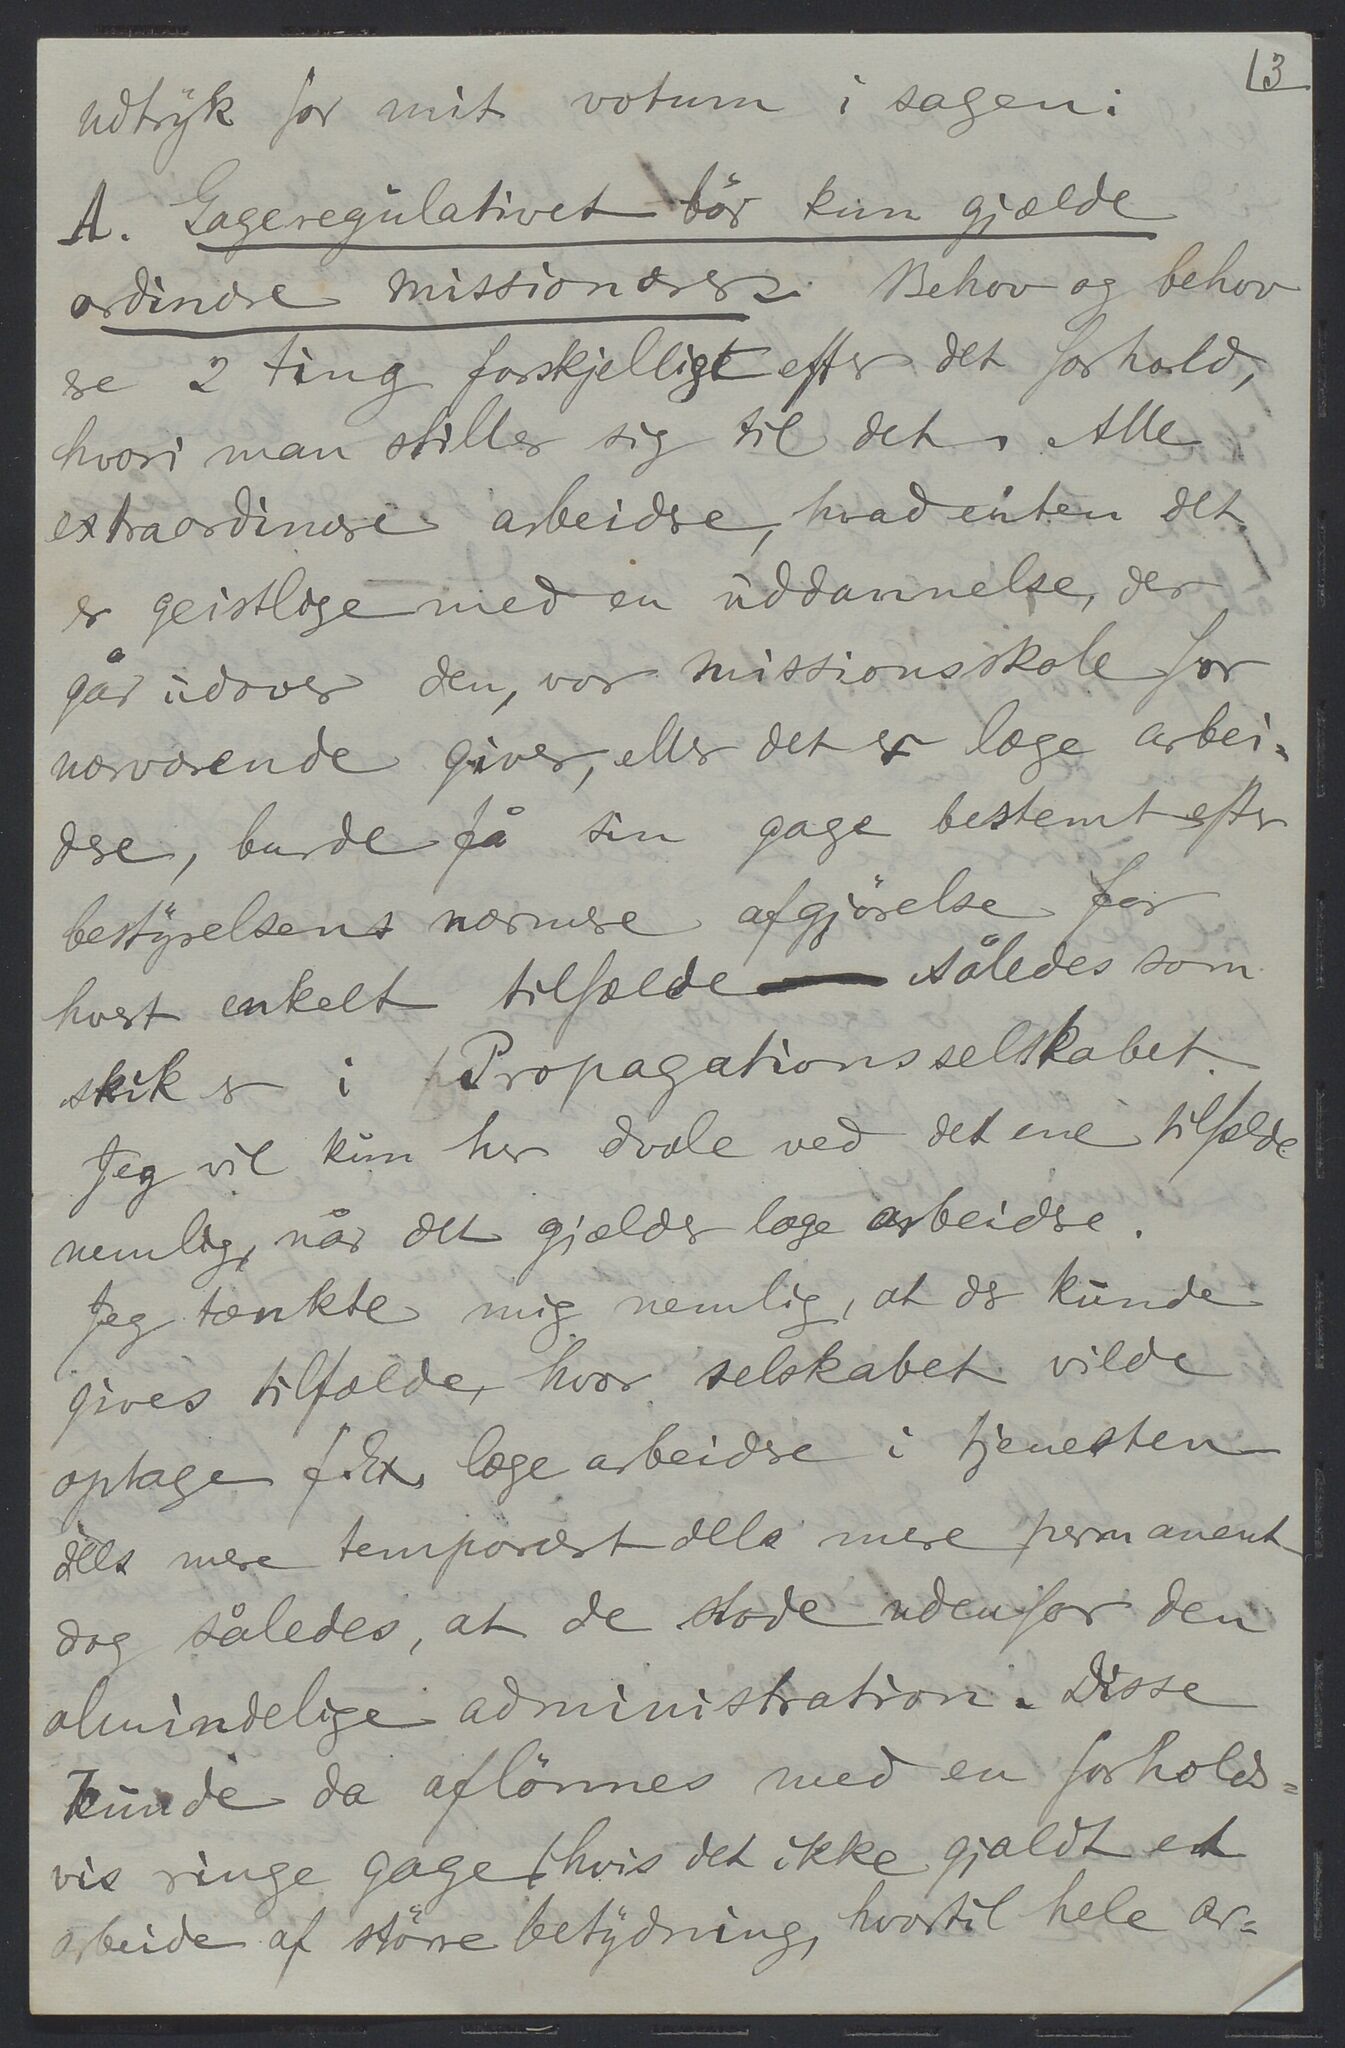 3
udtryk for mit votum i sagen:
A. Gageregulativet bör kun gjælde
ordinære missionærer. Behov og behov
er 2 ting forskjelligt efter det forhold,
hvori man stiller sig til det. Alle
extraordinære arbeidere, hvad enten det
er geistlige med en uddannelse, der
går udover den, vor missionsskole for
nærværende giver, eller det er læge arbei=
dere, burde få sin gage bestemt efter
bestyrelsens nærmere afgjörelse for
hvert enkelt tilfælde – således som
skik er i Propagationsselskabet.
Jeg vil kun her dvæle ved det ene tilfælde
nemlig, når det gjælder læge arbeidere.
Jeg tænkte mig nemlig, at der kunde
gives tilfælde, hvor selskabet vilde
optage f. Ex. læge arbeidere i tjenesten
dels mere temporært dels mere permanent
dog således, at de stode udenfor den
almindelige administration. Disse
kunde da aflönnes med en forholds=
vis ringe gage (hvis det ikke gjaldt et
arbeide af större betydning, hvortil hele ar=